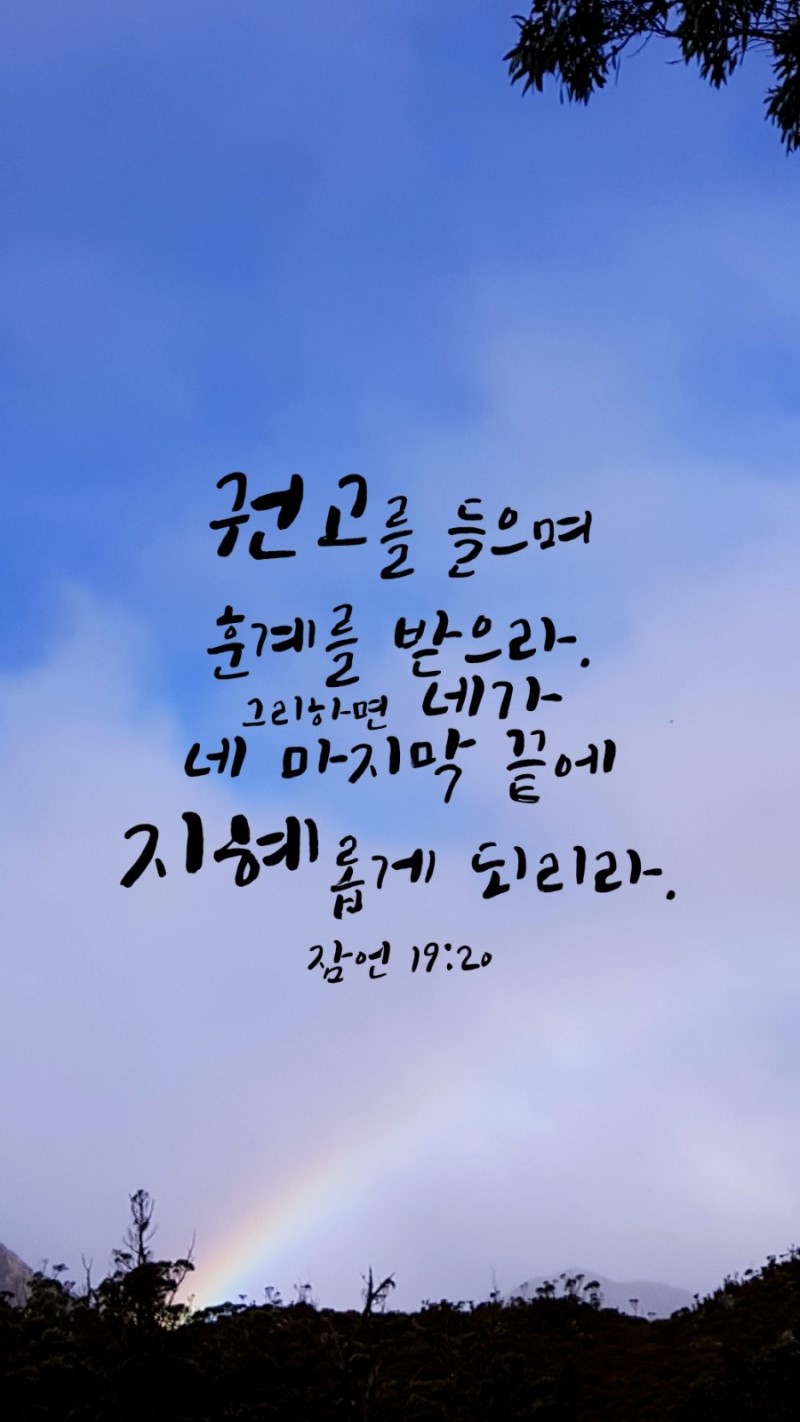 권고를 들으며
훈계를 받으라.
그리하면 네가
네 마지막 끝에
지혜롭게 되리라.
잠언 19:20